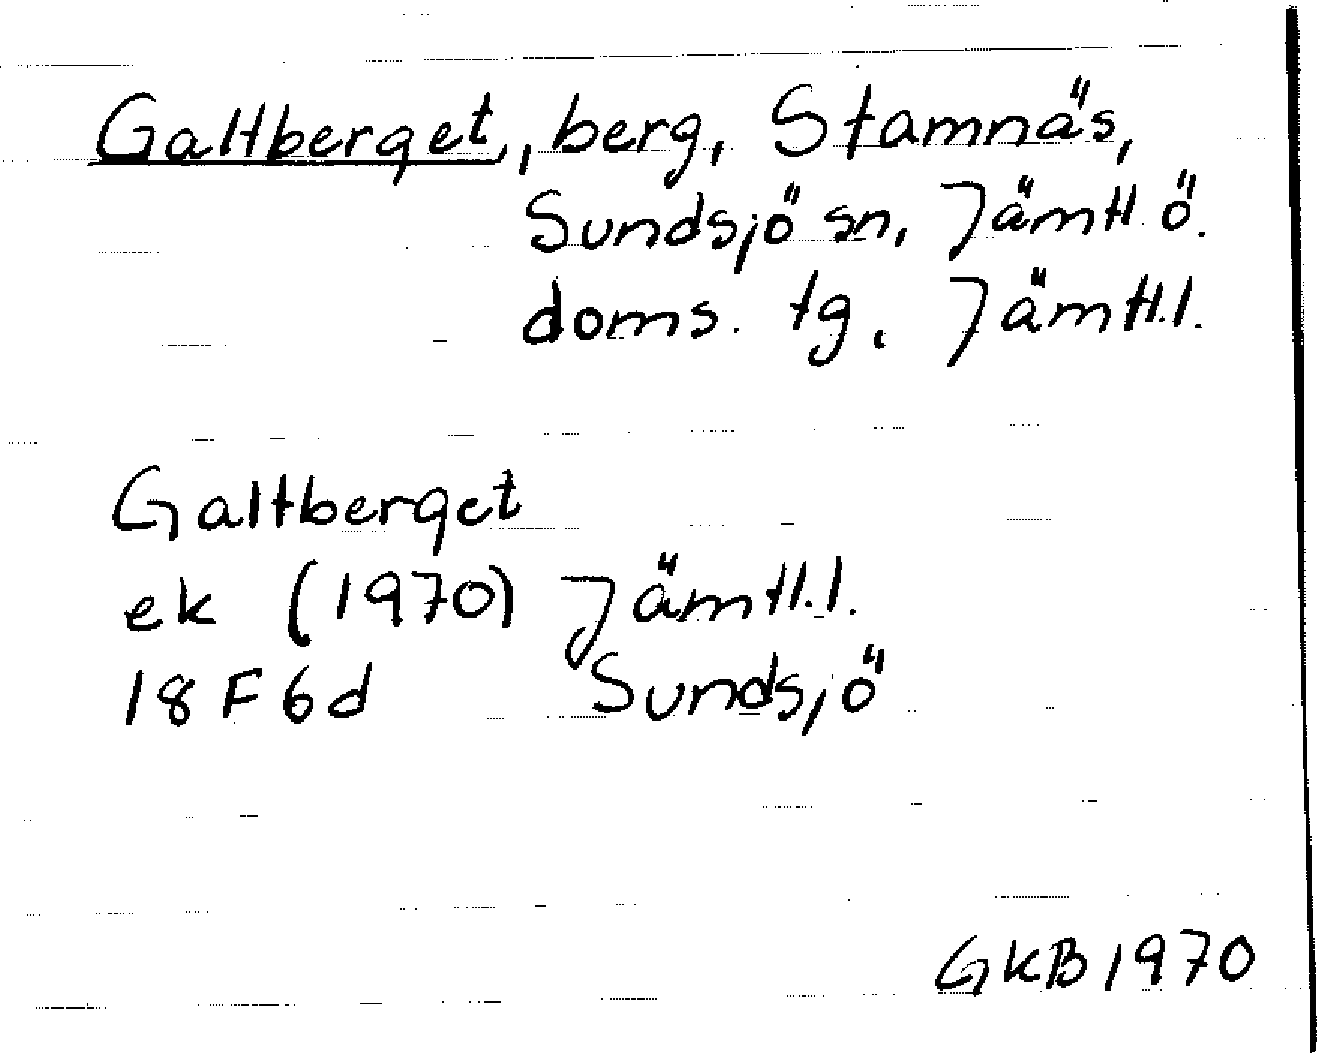 Galtberget, berg, Stamnäs,
Sundsjö sn, Jämtl. ö.
doms. tg. Jämtl.l.
Galtberget
ek (1970) Jämtl.l.
18F6d Sundsjö
GKB 1970